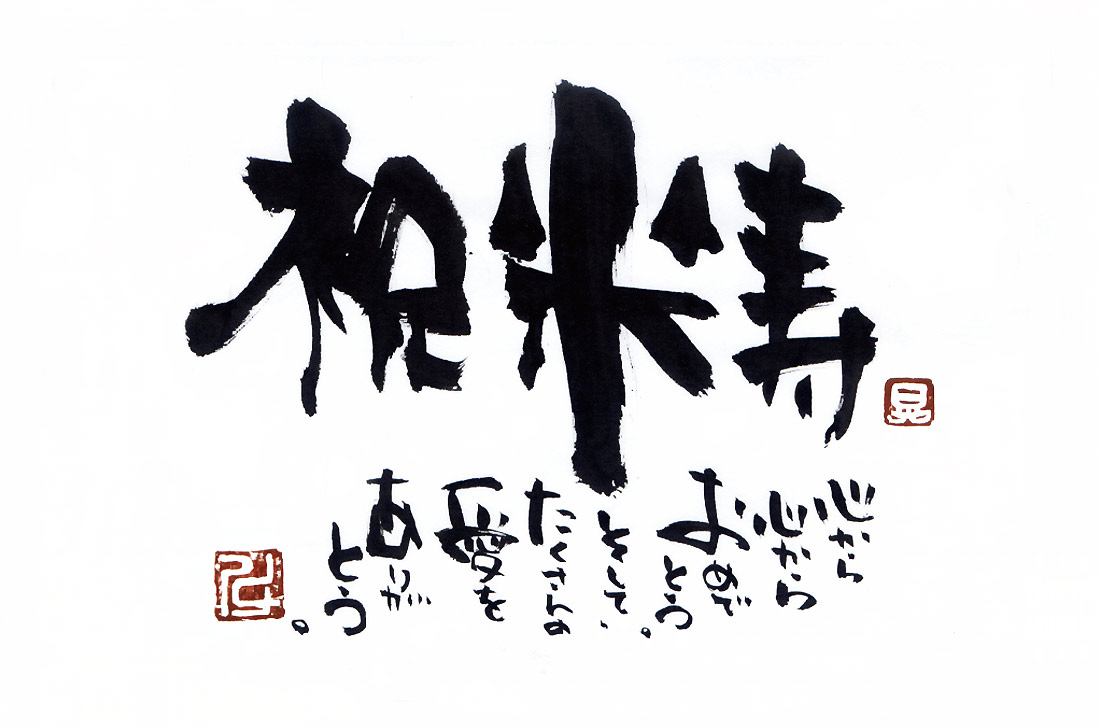 祝米寿
心から
心から
おめで
とう。
そして、
たくさんの
愛を
ありが
とう。